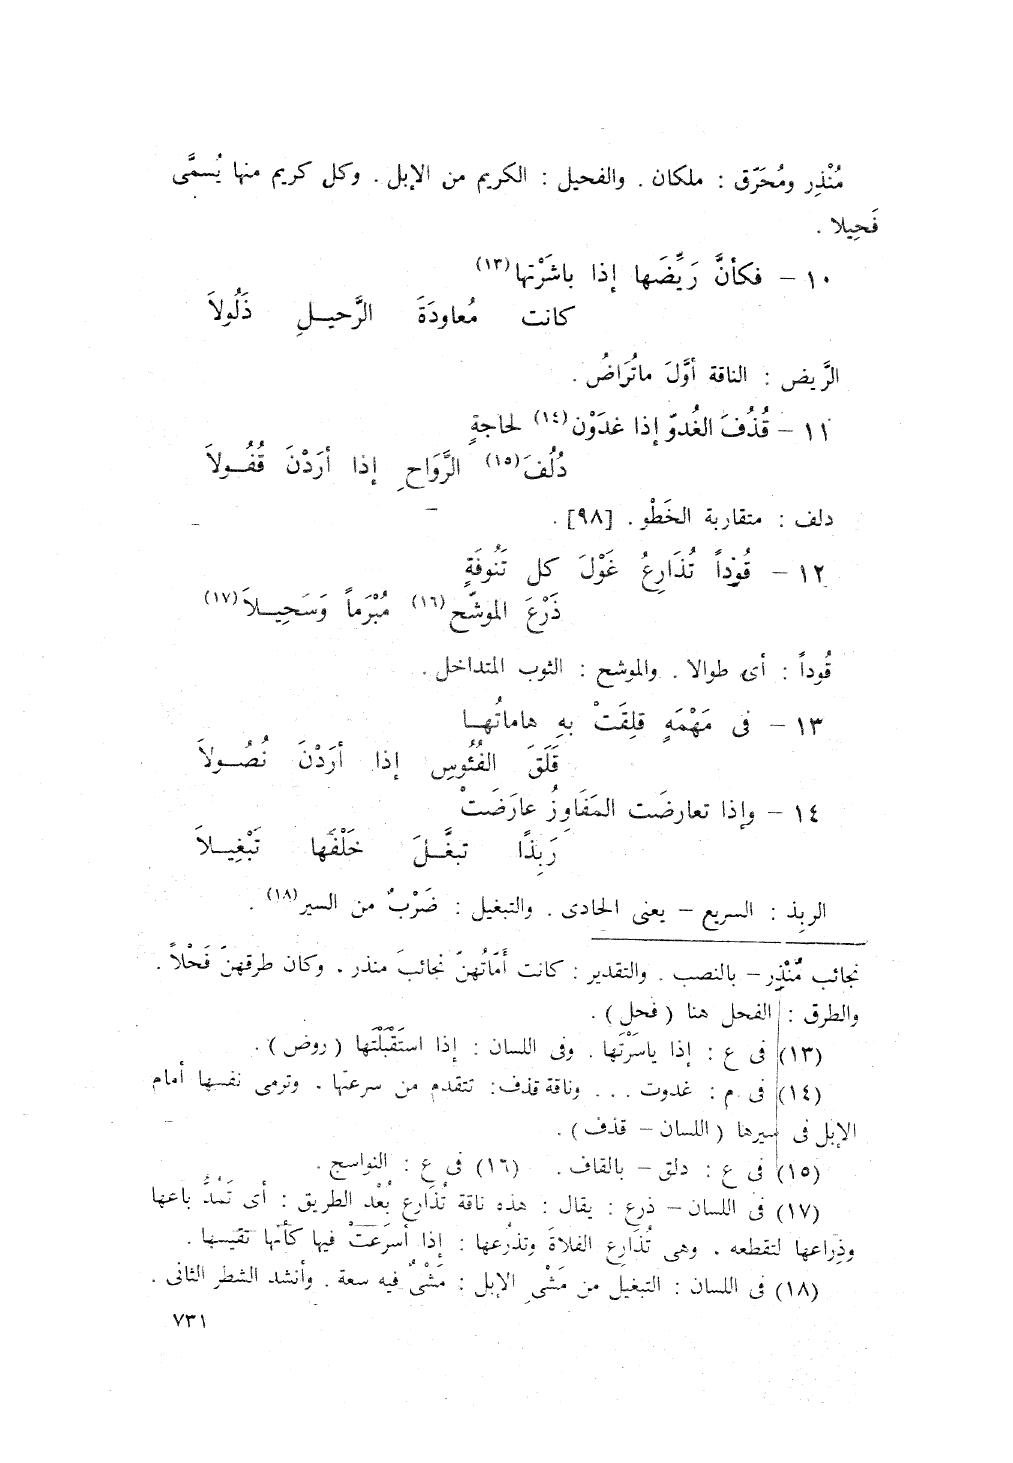 مُنْذِر ومُحَرّق : ملكان . والفحيل : الكريم من الإبل . وكل كريم منها يُسمَّى
فَحِيلا .
١٠ – فكأنَّ رَيِّضَها إذا باشَرْتها(١٣)
كانت مُعاودَةَ الرَّحيـلِ ذَلُولاَ
الرَّيض : الناقة أوَّلَ ماتُرَاضُ .
١١ – قُذُفَ الغُدوّ إذا غدَوْن(١٤) لحاجةٍ
دُلُفَ(١٥) الرَّوَاحِ إذا أرَدْنَ قُفُـولاَ
دلف : متقاربة الخَطْو . [٩٨] .
١٢ – قُوْداً تُذَارِعُ غَوْلَ كل تَنُوفَةٍ
ذَرْعَ الموشّح(١٦) مُبْرَماً وَسَحِيـلاَ(١٧)
قُوداً : أى طوالا . والموشح : الثوب المتداخل .
١٣ – فى مَهْمَهٍ قلِقَتْ بهِ هاماتُهـا
قَلَقَ الفُئُوسِ إذا أرَدْنَ نُصُـولاَ
١٤ – وإذا تعارضَت المَفَاوِزُ عارَضَتْ
رَبِذًا تبغَّـلَ خَلْفَها تَبْغِيـلاَ
الربِذ : السريع – يعنى الحادى . والتبغيل : ضَرْبٌ من السير(١٨) .
نجائب مُنْذِر – بالنصب . والتقدير : كانت أَمّاتُهنّ نجائبَ منذر . وكان طرقهنّ فَحْلاً .
والطرق : الفحل هنا ( فحل ) .
(١٣) فى ع : إذا ياسَرْتَها . وفى اللسان : إذا استَقْبَلْتَها ( روض ) .
(١٤) فى م : غدوت . . . وناقة قذف: تتقدم من سرعتها . وترمى نفسها أمام
الإبل فى سيرها ( اللسان – قذف ) .
(١٥) فى ع : دلق – بالقاف . (١٦) فى ع : النواسج .
(١٧) فى اللسان – ذرع : يقال : هذه ناقة تُذَارع بُعْد الطريق : أى تَمُدُّ باعها
وذِراعها لتقطعه . وهى تُذَارِع الفلاةَ وتذرُعها : إذا أسرَعَتْ فيها كأنّها تقيسها .
(١٨) فى اللسان : التبغيل من مَشْىِ الإبل : مَشْىٌ فيه سعة . وأنشد الشطر الثانى .
٧٣١